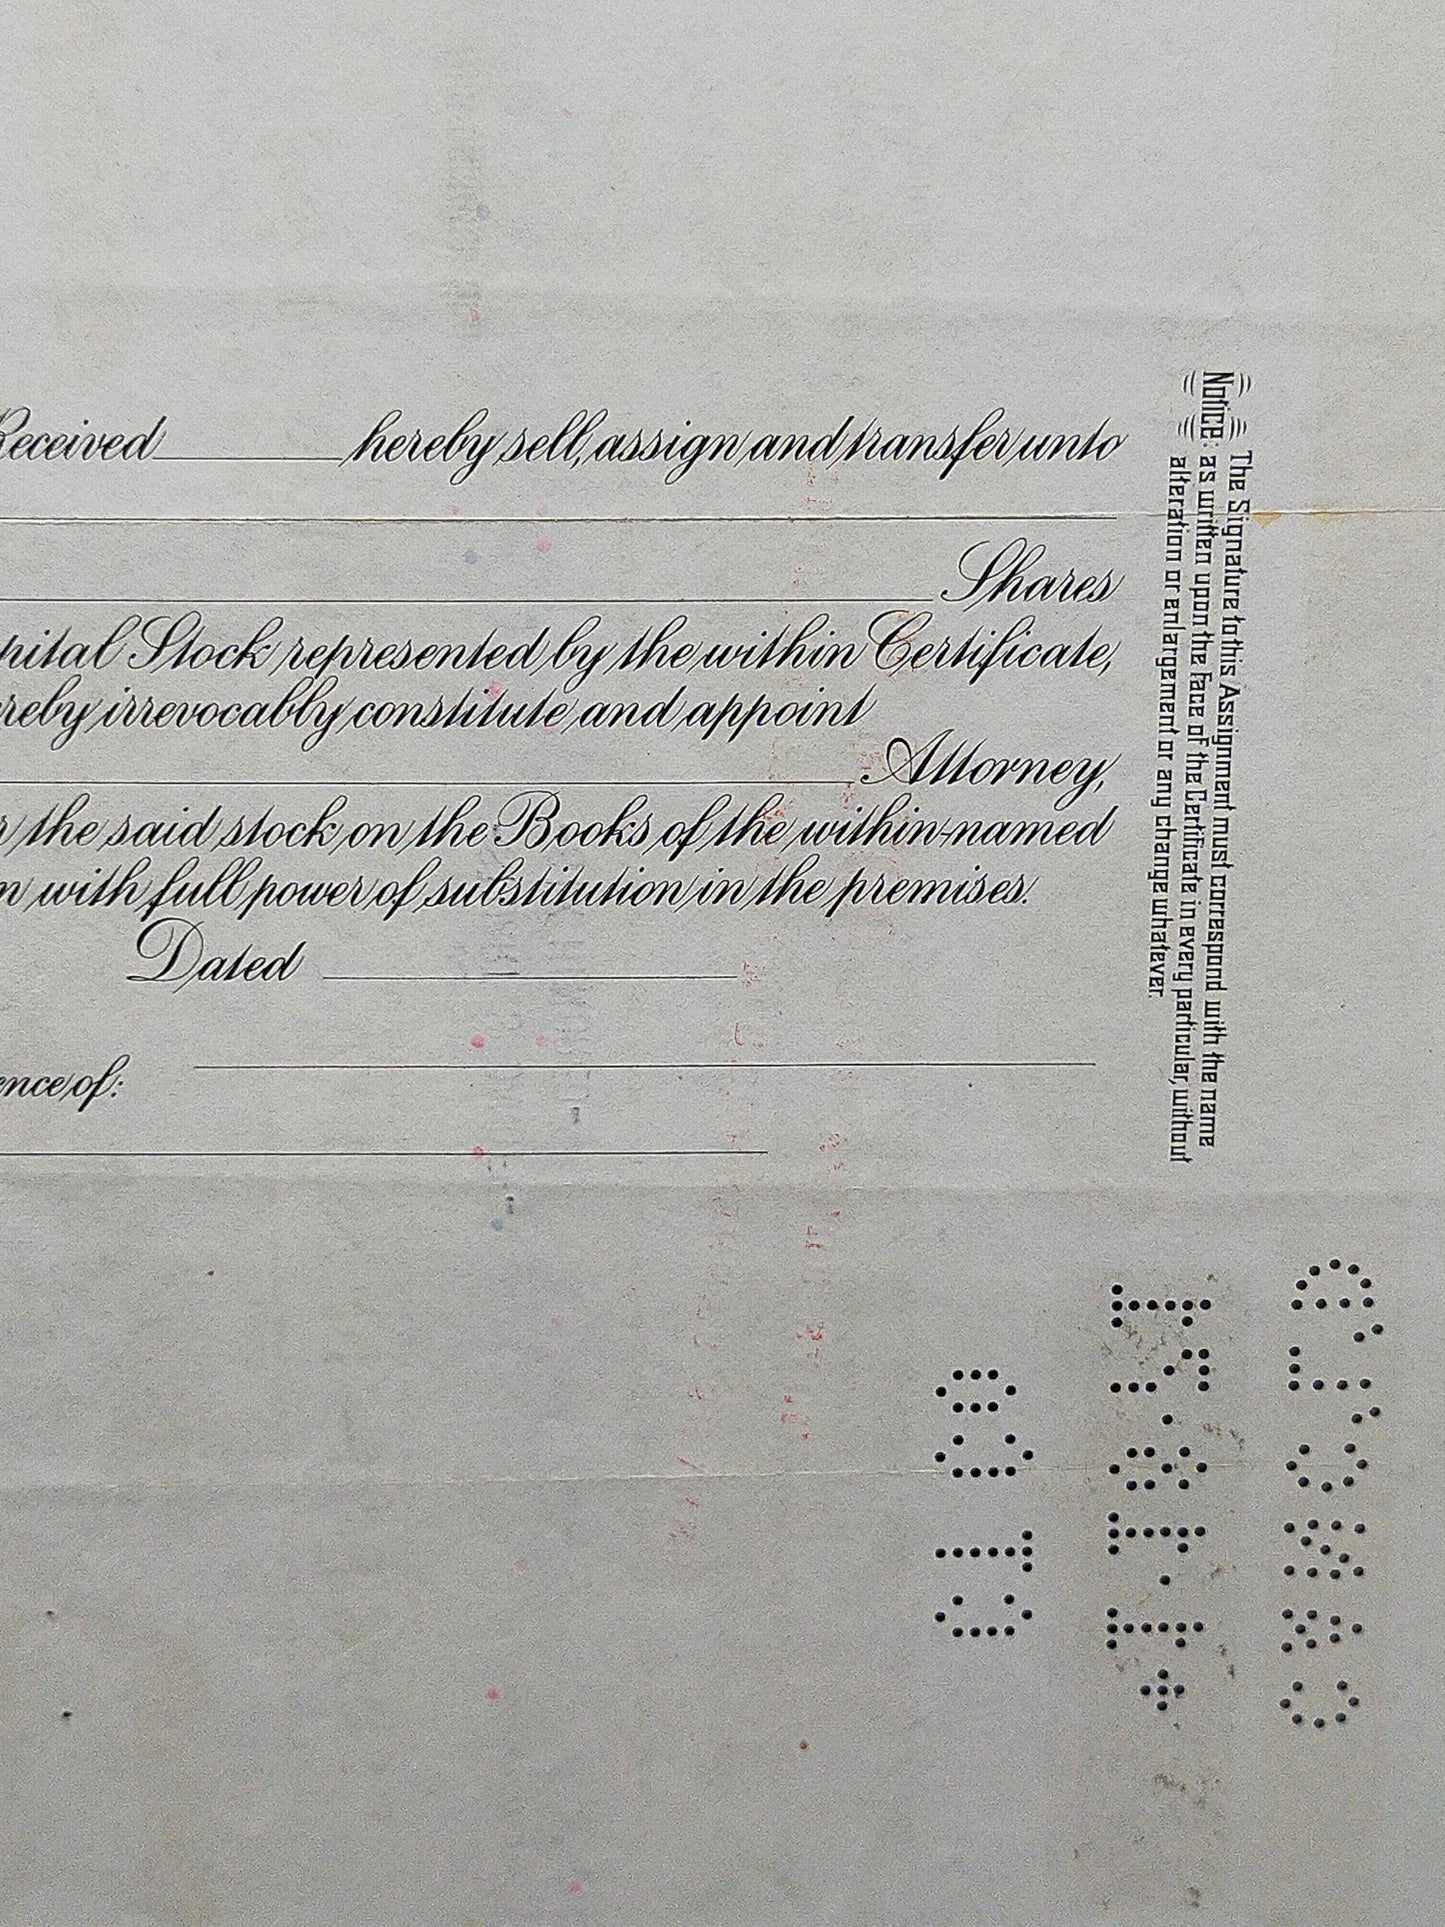 Received hereby sell, assign and transfer unto
Shares
pital Stock represented by the within Certificate,
reby irrevocably constitute and appoint
Attorney,
r the said stock on the Books of the within-named
n with full power of substitution in the premises.
Dated
ence of:
Notice: The Signature to this Assignment must correspond with the name
as written upon the face of the Certificate in every particular, without
alteration or enlargement or any change whatever.